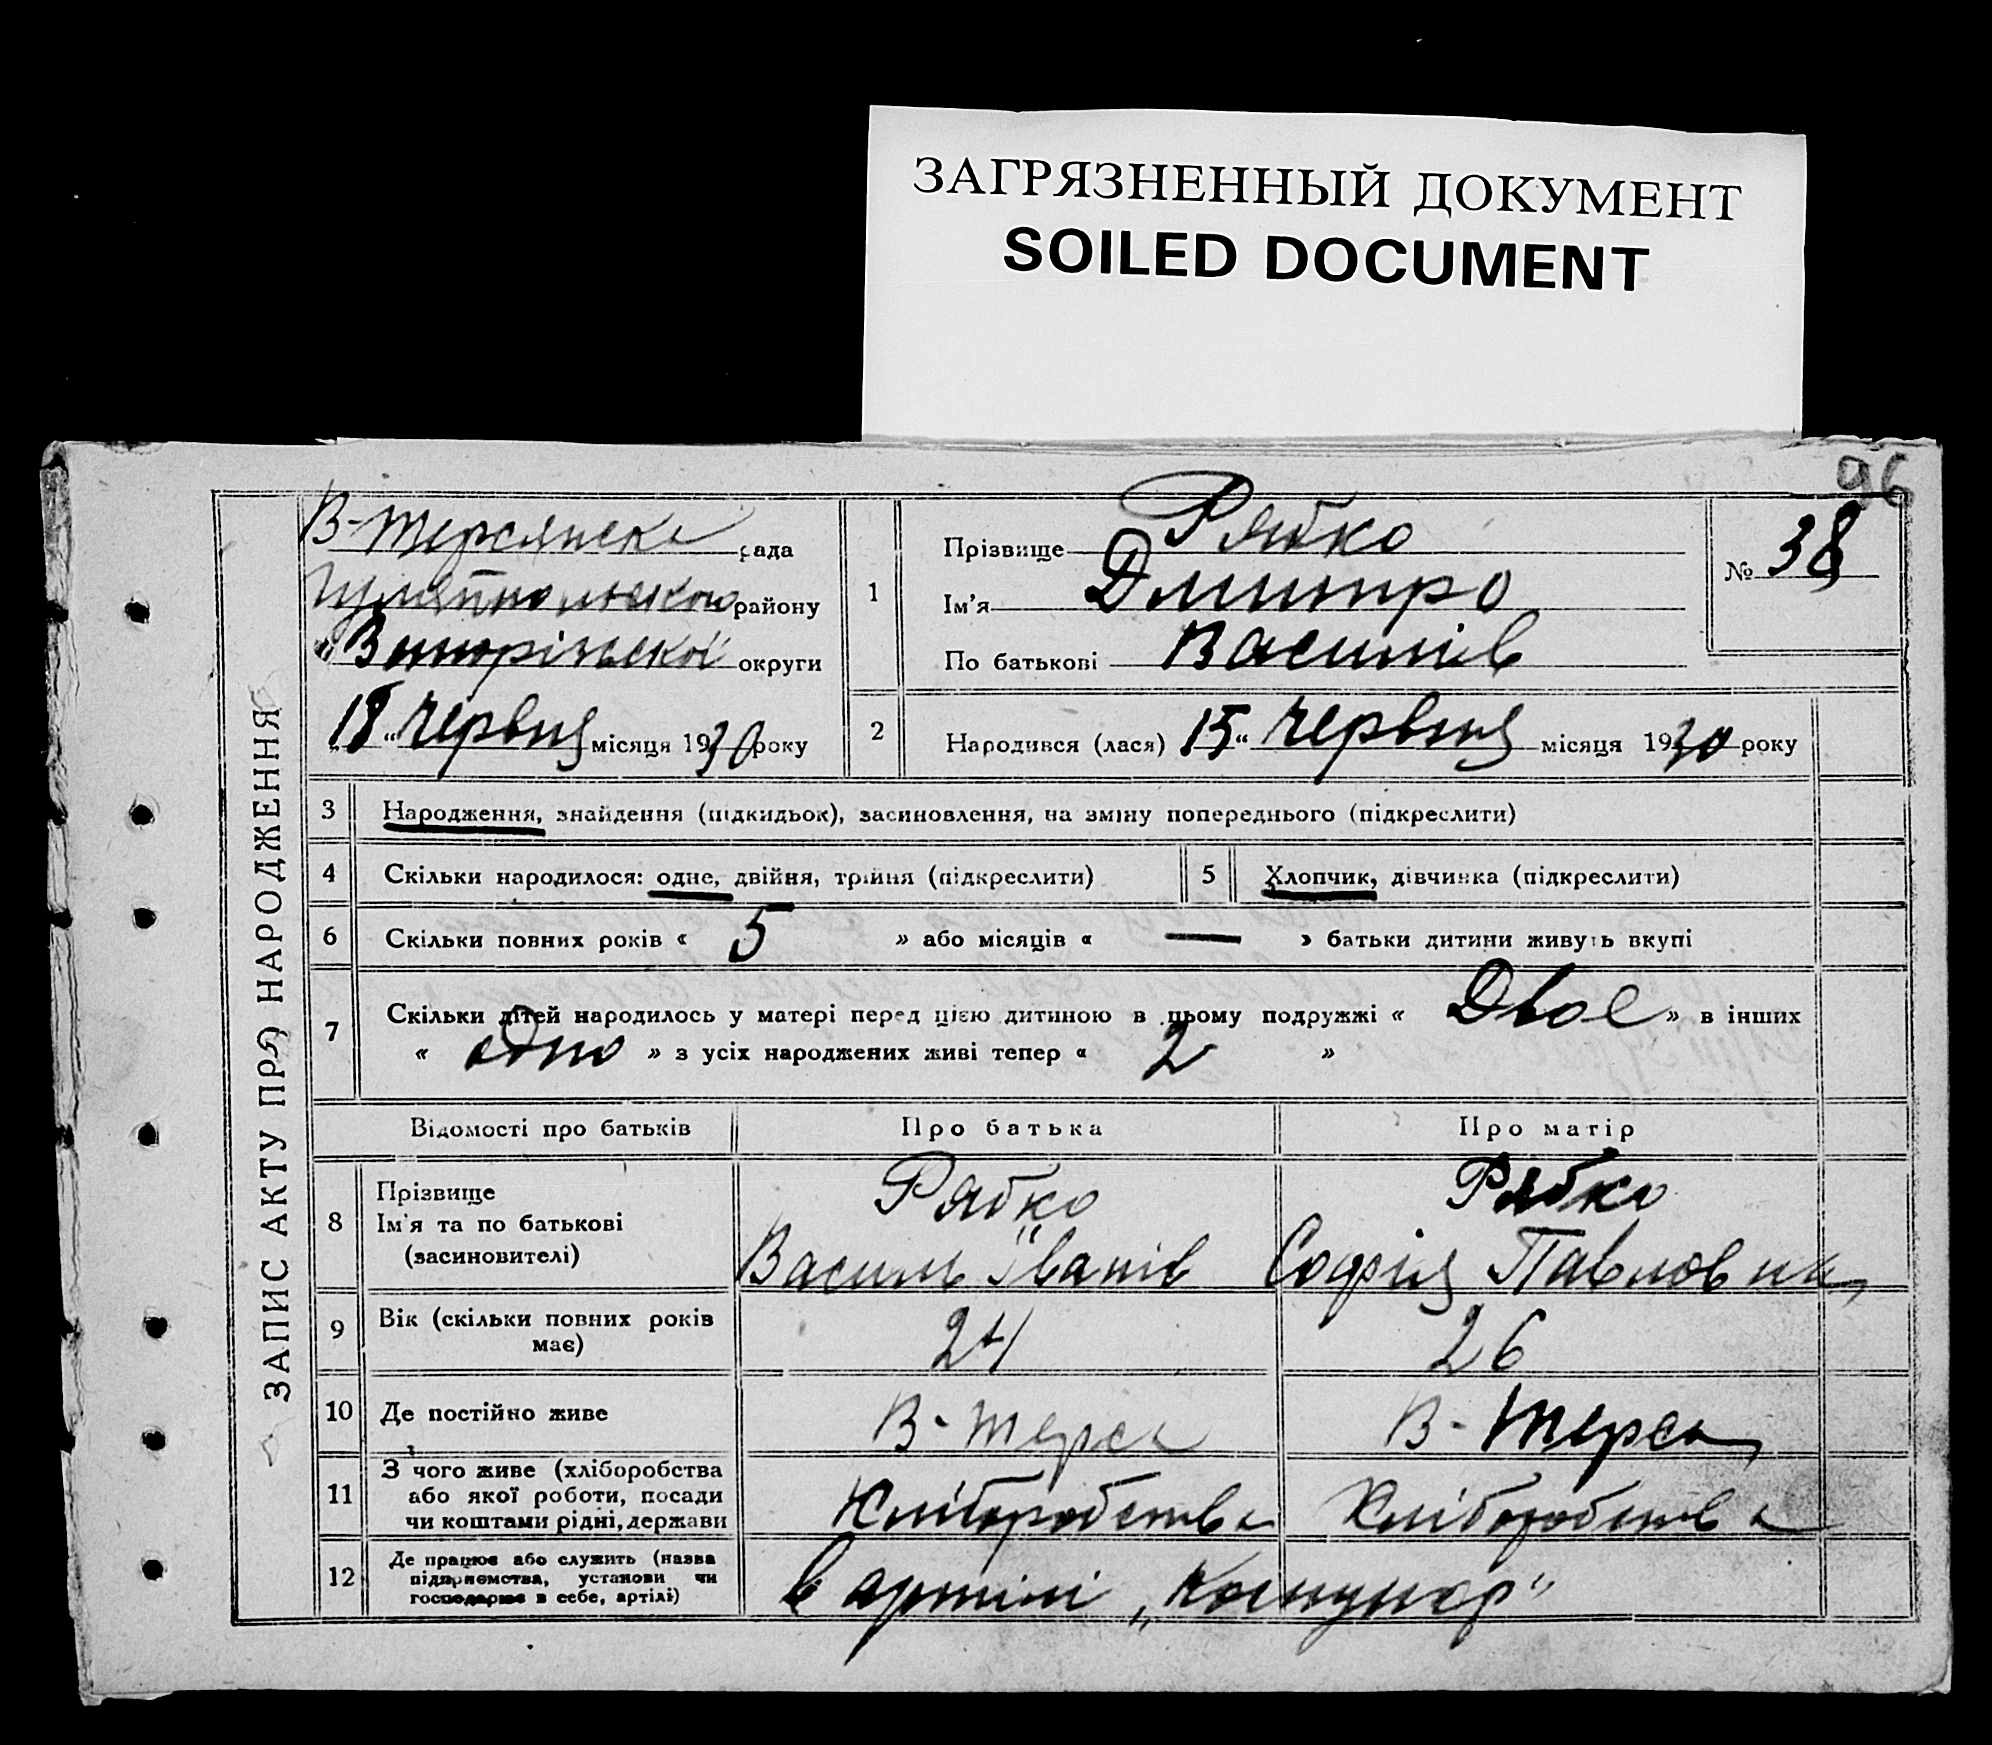 ЗАГРЯЗНЕННЫЙ ДОКУМЕНТ
SOILED DOCUMENT
96
ЗАПИС АКТУ ПРО НАРОДЖЕННЯ
В-Терсянска рада
Гуляйпольского району
Запорізької округи
18 " червня місяця 1930 року
1
Прізвище Рябко
Ім'я Дмитро
По батькові Василів
№ 38
2
Народився (лася) 15 " червня місяця 1930 року
3 Народження, знайдення (підкидьок), засиновлення, на зміну попереднього (підкреслити)
4 Скільки народилося: одне, двійня, трійня (підкреслити)
5 Хлопчик, дівчинка (підкреслити)
6 Скільки повних років « 5 » або місяців « — » батьки дитини живуть вкупі
7 Скільки дітей народилось у матері перед цією дитиною в цьому подружжі « Двоє » в інших
« одно » з усіх народжених живі тепер « 2 »
Відомості про батьків Про батька Про матір
8 Прізвище
Ім'я та по батькові
(засиновителі)
Рябко
Василь Іванів
Рябко
Софія Павловна
9 Вік (скільки повних років
має)
24 26
10 Де постійно живе В-Терса В-Терса
11 З чого живе (хліборобства
або якої роботи, посади
чи коштами рідні, держави
Хліборобства Хліборобства
12 Де працює або служить (назва
підприємства, установи чи
господарює в себе, артілі)
в артілі „Комунар"